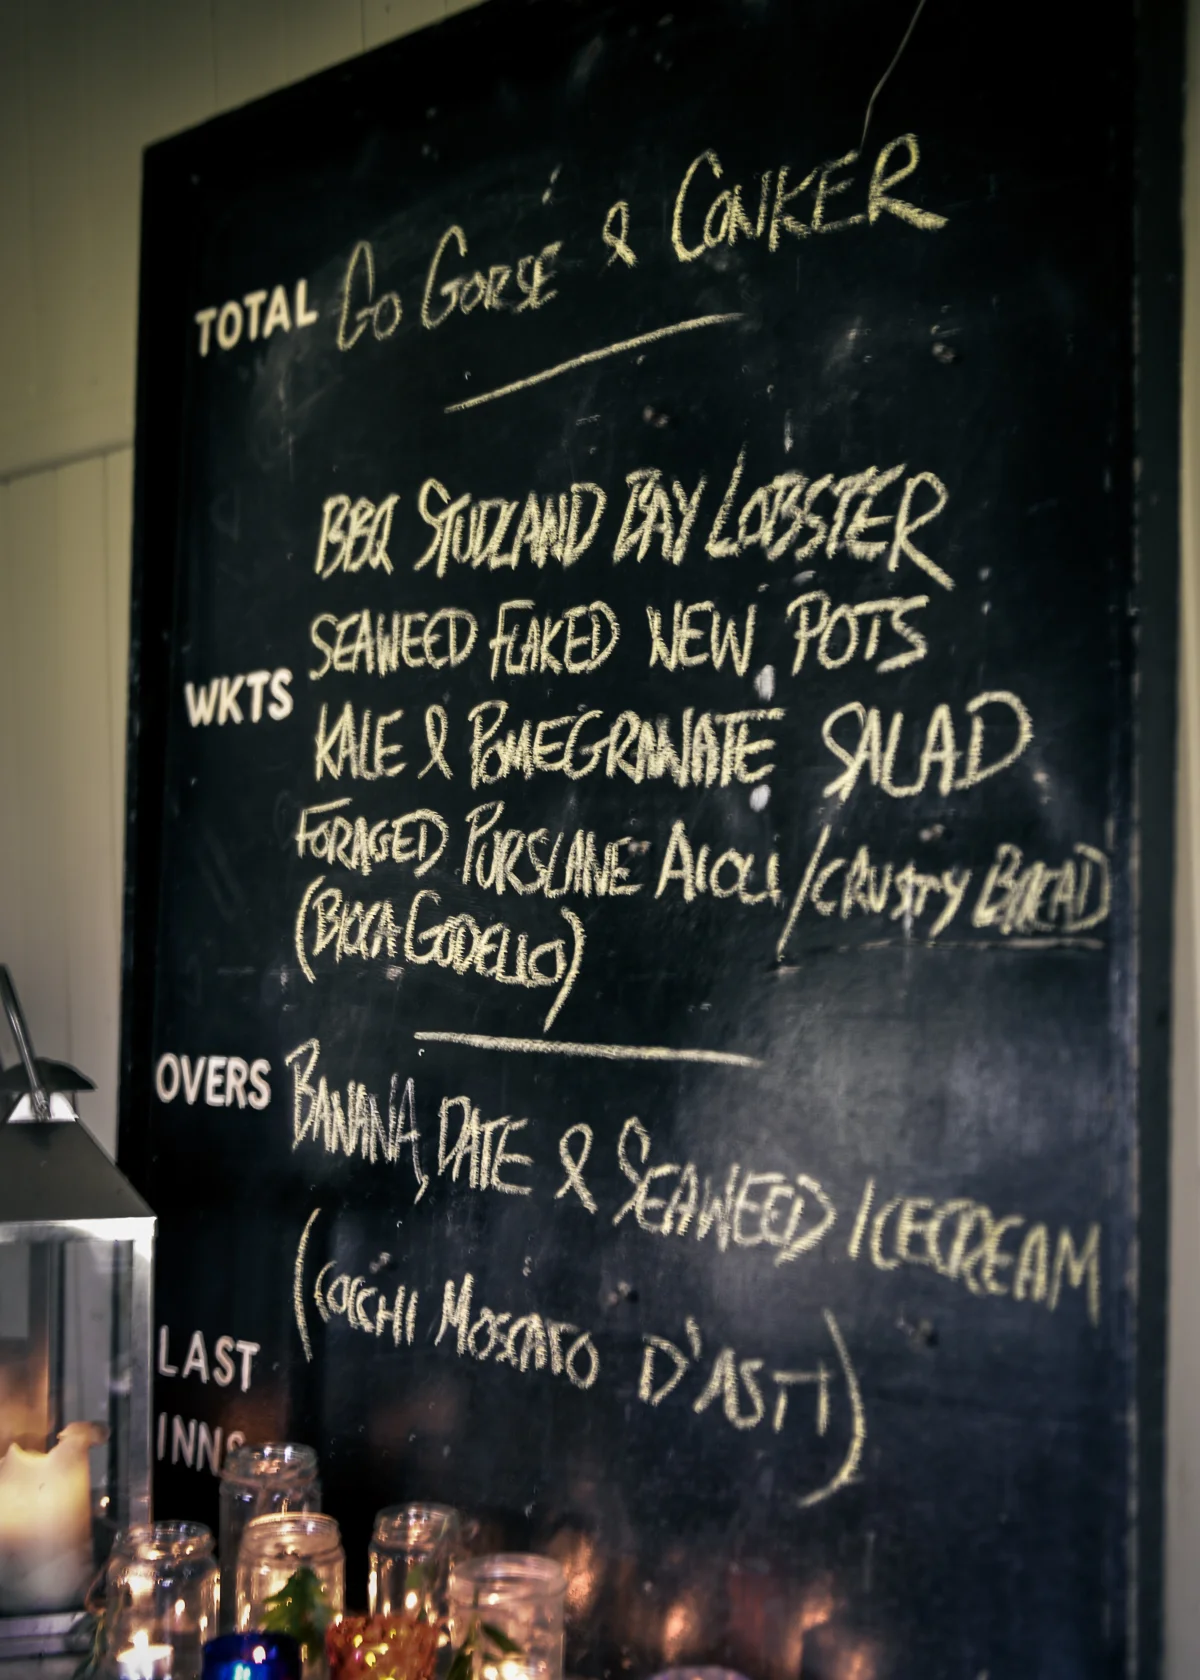 TOTAL GO GORSE & CONKER
BBQ STUDLAND BAY LOBSTER
SEAWEED FLAKED NEW POTS
WKTS
KALE & POMEGRANATE SALAD
FORAGED PURSLANE AIOLI / CRUSTY BREAD
(BICCA GODELLO)
OVERS
BANANA, DATE & SEAWEED ICECREAM
(COCCHI MOSCATO D'ASTI)
LAST
INNS